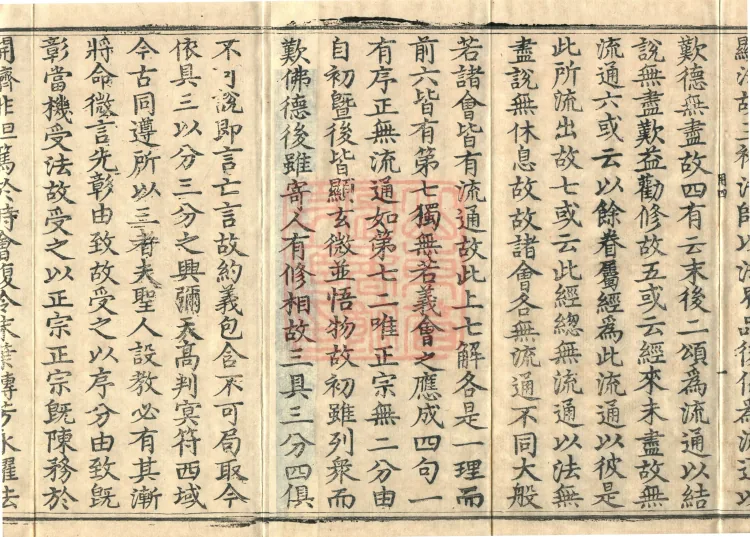 歎德無盡故四有云末後二頌爲流通以結
說無盡歎益勸修故五或云經來未盡故無
流通六或云以餘眷屬經爲此流通以彼是
此所流出故七或云此經總無流通以法無
盡說無休息故故諸會各無流通不同大般
若諸會皆有流通故此上七解各是一理而
前六皆有第七獨無若義會之應成四句一
有序正無流通如第七二唯正宗無二分由
自初曁後皆顯玄微並悟物故初雖列衆而
歎佛德後雖寄人有修相故三具三分四俱
不可說即言亡言故約義包含不可局取今
依具三以分三分之興彌天高判冥符西域
今古同遵所以三者夫聖人設教必有其漸
將命微言先彰由致故受之以序分由致旣
彰當機受法故受之以正宗正宗旣陳務於